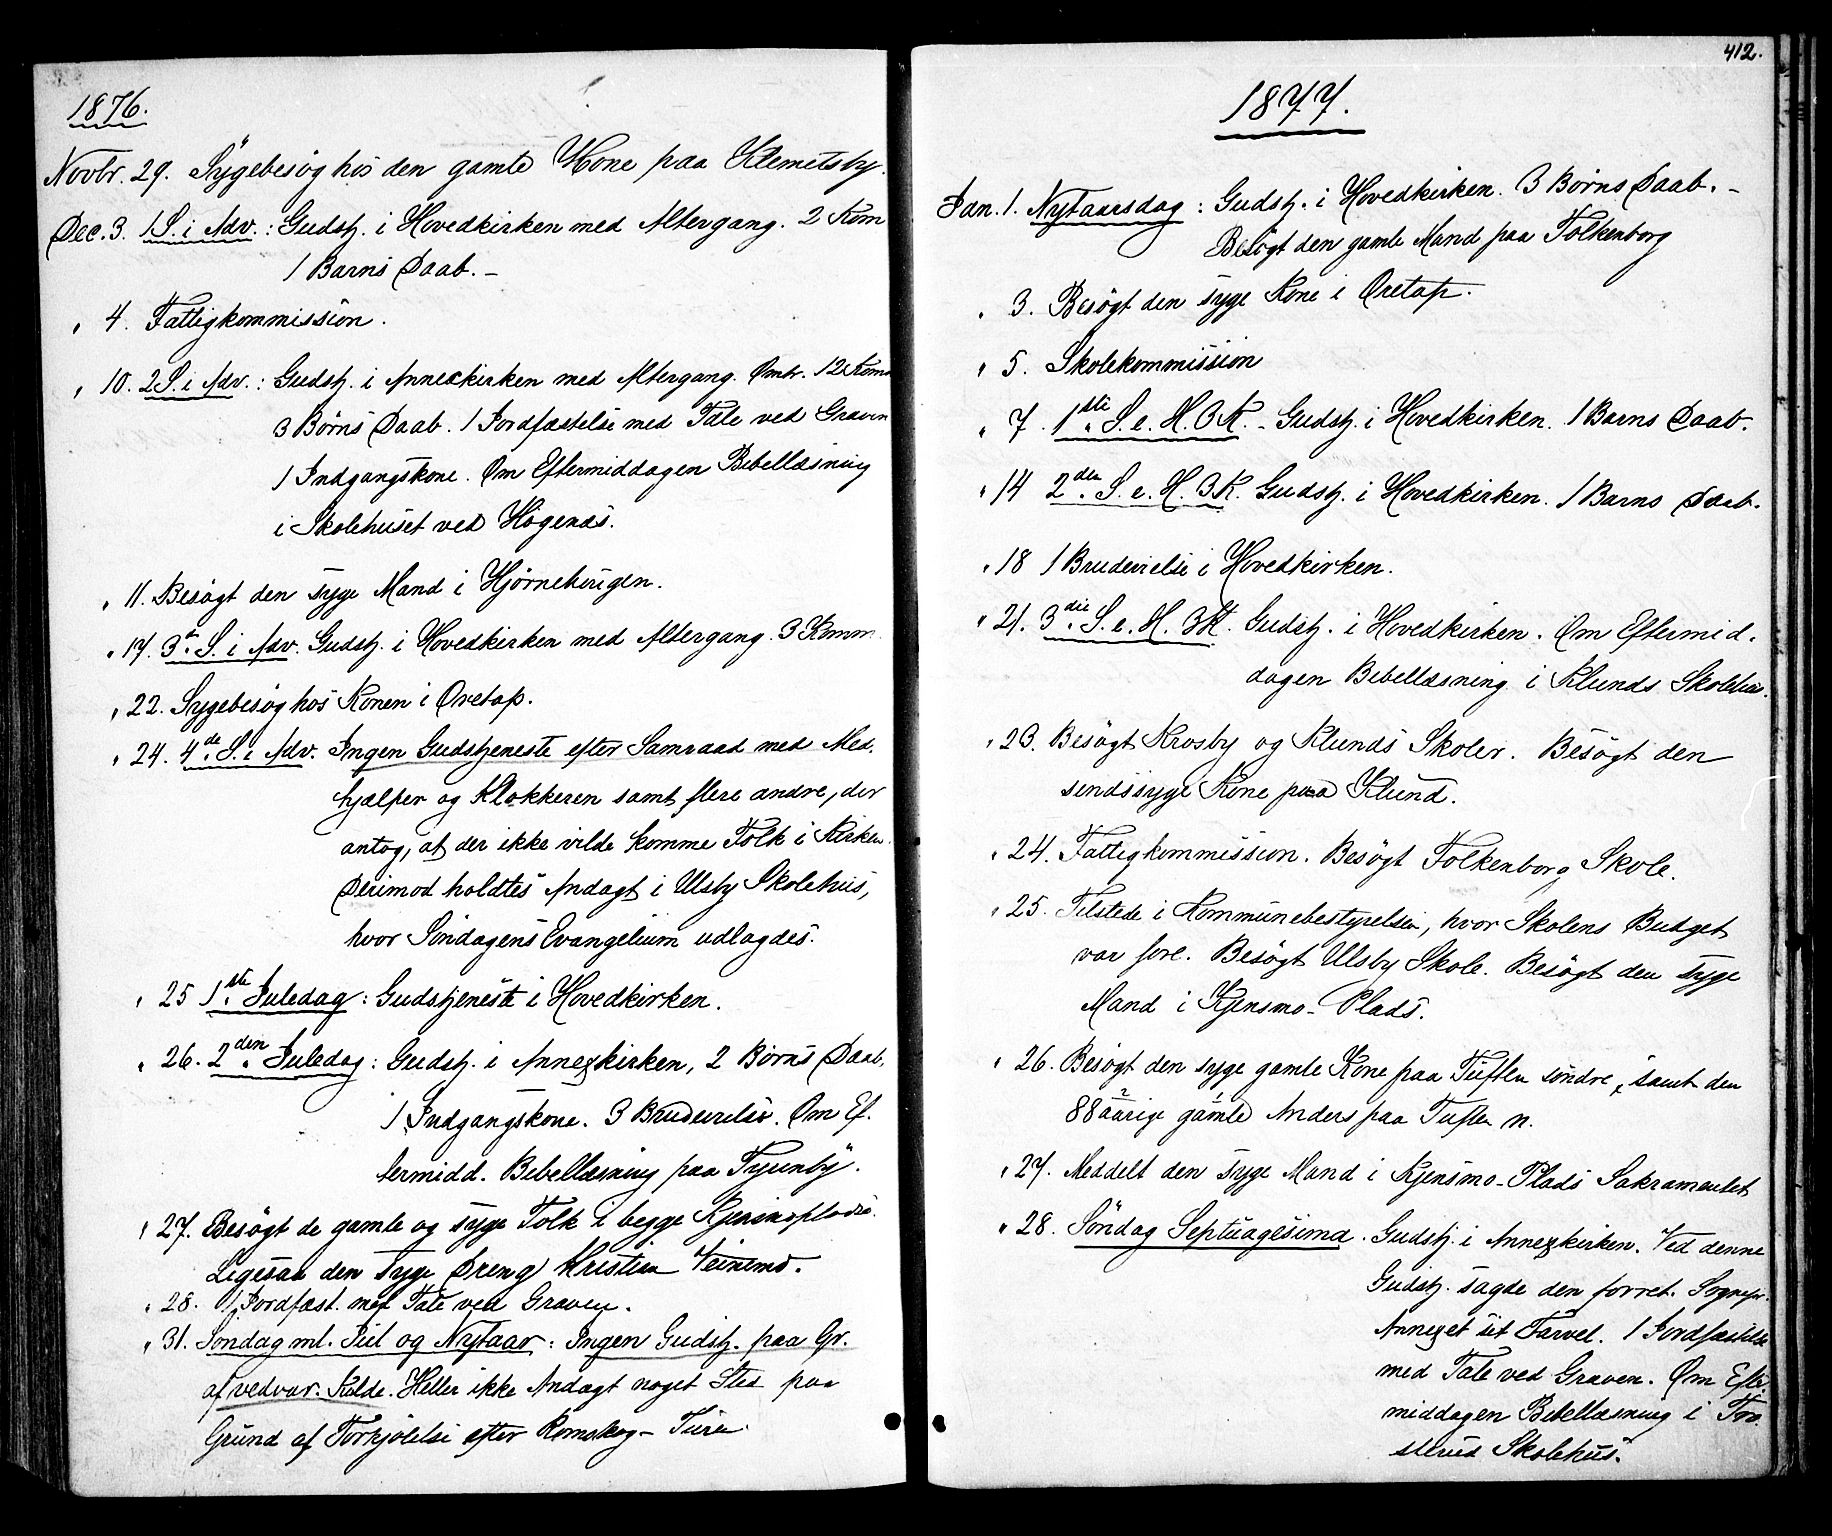 1876.
Novbr. 29. Sygebesøg hos den gamle Kone paa Klemetsby.
Dec. 3. 1 S. i Adv.: Gudstj. i Hovedkirken med Altergang. 2 Kom
1 Barns Daab. –
" 4. Fattigkommission.
" 10. 2 S. i Adv.: Gudstj. i Annexkirken med Altergang. Omtr. 12 Kom
3 Børns Daab. 1 Jordfæstelse med Tale ved Graven
1 Indgangskone. Om Eftermiddagen Bibellæsning
i Skolehuset ved Högenæs.
" 11. Besøgt den syge Mand i Hjørnehaugen.
" 17. 3die S. i Adv. Gudstj. i Hovedkirken med Altergang. 3 Komm
" 22. Sygebesøg hos Konen i Oretap.
" 24. 4de S. i Adv. Ingen Gudstjeneste efter Samraad med Med-
hjælper og Klokkeren samt flere andre, der
antog, at der ikke vilde komme Folk i Kirken.
Derimod holdtes Andagt i Ulsby Skolehus,
hvor Søndagens Evangelium udlagdes.
" 25 1ste Juledag: Gudstjeneste i Hovedkirken.
" 26. 2den Juledag: Gudstj. i Annexkirken, 2 Børns Daab.
1 Indgangskone. 3 Brudevielser. Om Ef-
termidd. Bibellæsning paa
" 27. Besøgt de gamle og syge Folk i begge Kjensmoplads.
Ligesaa den syge Dreng Kristian
" 28. 1 Jordfæst. med Tale ved Graven.
" 31. Søndag ml. Jul og Nytaar: Ingen Gudstj. paa Gr.
af vedvar. Kulde. Heller ikke Andagt noget Sted paa
Grund af Forkjølelse efter Romskog-Turen.
412.
1877.
Jan. 1. Nytaarsdag: Gudstj. i Hovedkirken. 3 Børns Daab. –
Besøgt den gamle Mand paa Folkenborg
" 3. Besøgt den syge Kone i Oretap.
" 5. Skolekommission
" 7. 1ste S. e. H. 3 K. – Gudstj. i Hovedkirken. 1 Barns Daab.
" 14 2den S. e. H. 3 K. Gudstj. i Hovedkirken. 1 Barns Daab.
" 18 1 Brudevielse i Hovedkirken.
" 21. 3die S. e. H. 3 K. Gudstj. i Hovedkirken. Om Eftermid-
dagen Bibellæsning i Klunds Skolehus.
" 23. Besøgt Krosby og Klunds Skoler. Besøgt den
sindssyge Kone paa Klund.
" 24. Fattigkommission. Besøgt Folkenborg Skole.
" 25. Tilstede i Kommunebestyrelsen, hvor Skolens Budget
var fore. Besøgt Ulsby Skole. Besøgt den syge
Mand i Kjensmo-Plads.
" 26. Besøgt den syge gamle Kone paa Tuften søndre, samt den
88 aarige gamle Anders paa Tuften n.
" 27. Meddelt den syge Mand i Kjensmo-Plads Sakramentet
" 28. Søndag Septuagesima. Gudstj. i Annexkirken. Ved denne
Gudstj. sagde den forret. Sognepr.
Annexet sit Farvel. 1 Jordfæstelse
med Tale ved Graven. Om Efter-
middagen Bibellæsning i Fos-
sterud Skolehus.